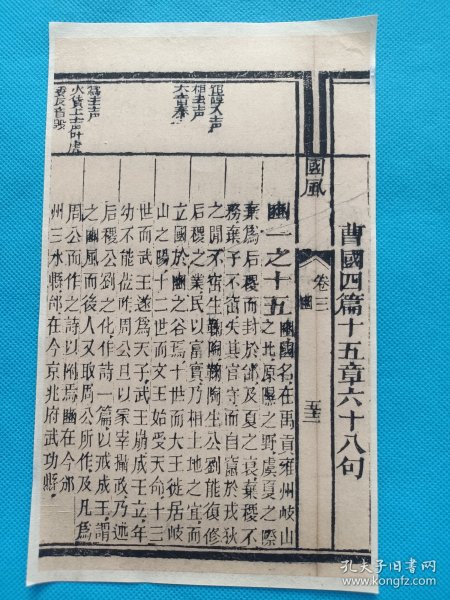 曹國四篇十五章六十八句
國風
卷三
豳
相去声
大音泰
爲去声
豳一之十五
豳國名在禹貢雍州岐山
之北原隰之野虞夏之際
棄爲后稷而封於邰及夏之衰棄稷不
務棄子不窋失其官守而自竄於戎狄
之間不窋生鞠陶鞠陶生公劉能復修
后稷之業民以富實乃相土地之宜而
立國於豳之谷焉十世而大王徙居岐
山之陽十二世而文王始受天命十三
世而武王遂爲天子武王崩成王立年
幼不能莅阼周公旦以冢宰攝政乃述
后稷公劉之化作詩一篇以戒成王謂
之豳風而後人又取周公所作及凡爲
周公而作之詩以附焉豳在今邠
州三水縣邰在今京兆府武功縣
孔夫子旧书网
www.kongfz.com